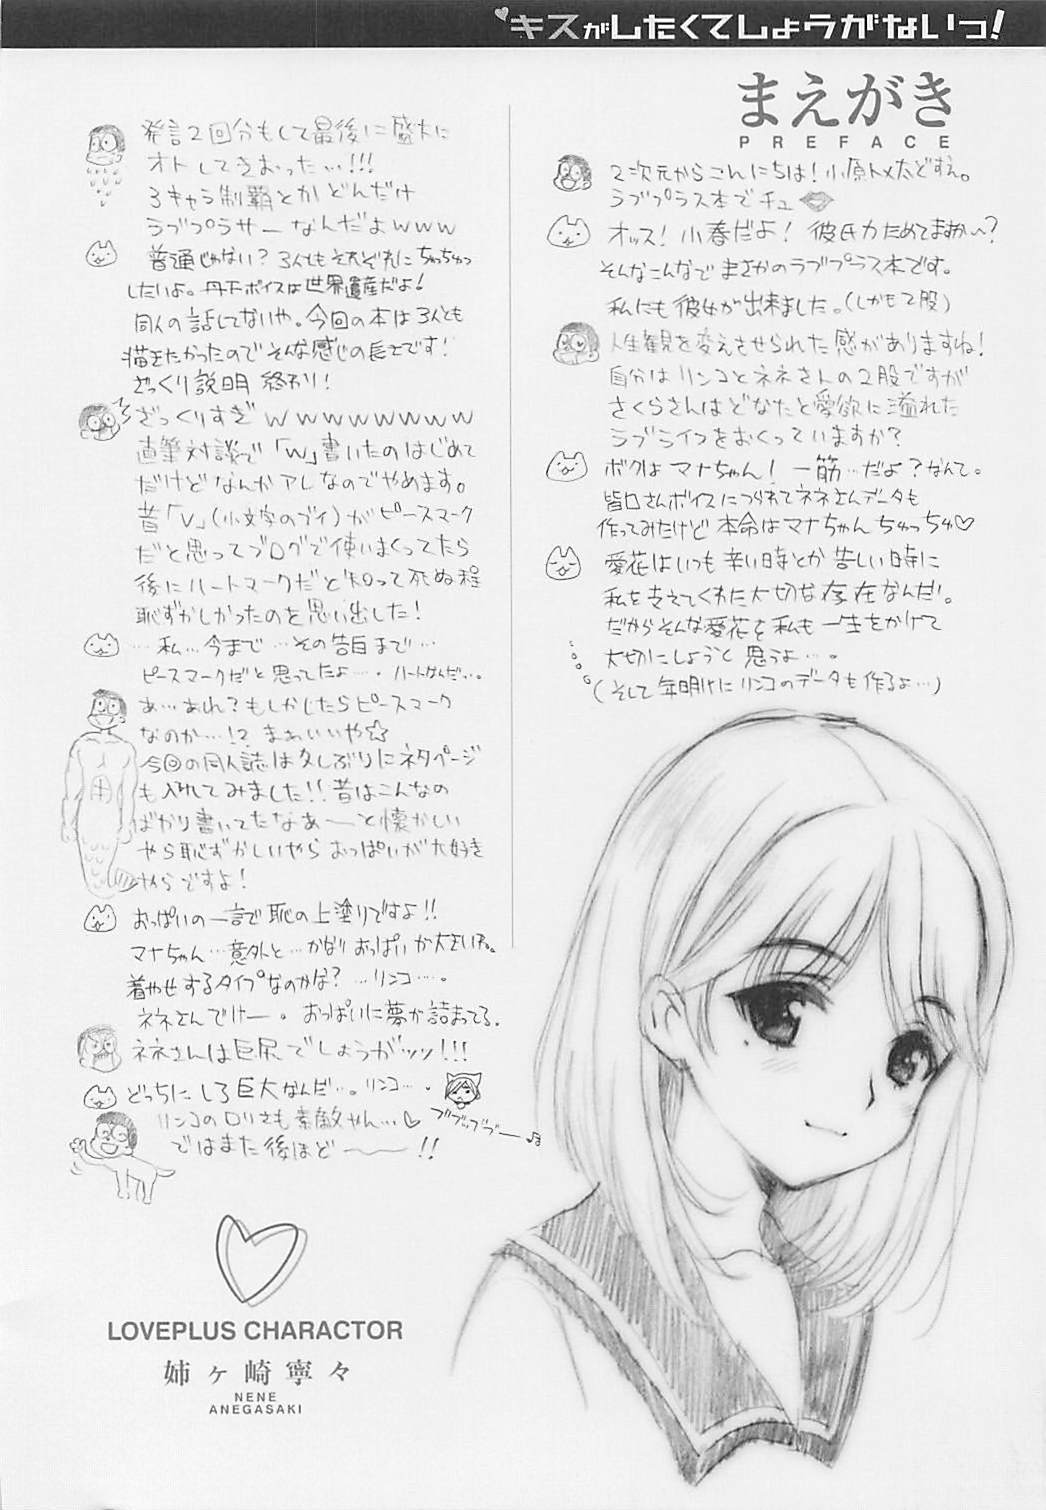 キスがしたくてしょうがないっ!
まえがき
PREFACE
2次元からこんにちは!小原トメ太どすえ。
ラブプラス本でチュ
オッス!小春だよ!彼氏力ためてますか〜?
そんなこんなで まさかのラブプラス本です。
私にも彼女が出来ました。(しかも2股)
人生観を変えさせられた感がありますね!
自分はリンコとネネさんの2股ですが
さくらさんはどなたと愛欲に溢れた
ラブライフをおくっていますか?
ボクはマナちゃん!一筋…だよ?なんて。
皆口さんボイスにつられてネネさんデータも
作ってみたけど本命はマナちゃんちゅっちゅ♡
愛花はいつも辛い時とか苦しい時に
私を支えてくれた大切な存在なんだ!。
だからそんな愛花を私も一生をかけて
大切にしようと思うよ…。
(そして年明けにリンコのデータも作るよ…)
発言2回分もして最後に盛大に
オトしてきおった…!!!
3キャラ制覇とかどんだけ
ラブプラサーなんだよwww
普通じゃない?3人ともそれぞれにちゅっちゅっ
したいよ。丹下ボイスは世界遺産だよ!
同人の話してないや。今回の本は3人とも
描きたかったのでそんな感じの長さです!
ざっくり説明 終わり!
ざっくりすぎwwwwwwww
直筆対談で「w」書いたのはじめて
だけどなんかアレなのでやめます。
昔「v」(小文字のブイ)がピースマーク
だと思ってブログで使いまくってたら
後にハートマークだと知って死ぬ程
恥ずかしかったのを思い出した!
…私…今まで…その告白まで…
ピースマークだと思ってたよ…。ハートなんだ…。
あ…あれ?もしかしたらピースマーク
なのか…!?まぁいいや☆
今回の同人誌は久しぶりにネタページ
も入れてみました!!昔はこんなの
ばかり書いてたなあ—と懐かしい
やら恥ずかしいやらおっぱいが大好き
やらですよ!
おっぱいの一言で恥の上塗りですよ!!
マナちゃん…意外と…かなりおっぱいが大きい子。
着やせするタイプなのかな?…リンコ…。
ネネさんでけー。おっぱいに夢が詰まってる。
ネネさんは巨尻でしょうがッッ!!!
どっちにしろ巨大なんだ…。リンコ…。
リンコのロリさも素敵やん…♡
ブブッブブー♪
ではまた後ほど〜!!
LOVEPLUS CHARACTOR
姉ヶ崎寧々
NENE
ANEGASAKI